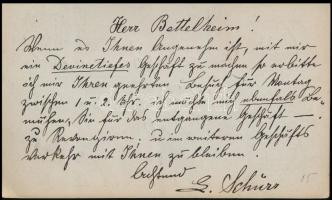 Herr Bettelheim!
Wenn es Ihnen Angenehm ist, mit mir
ein Geschäft zu machen so erbitte
ich mir Ihren geehrten Besuch für Montag
zwischen 1 u. 2. Uhr. ich möchte mich ebenfalls be
mühen, Sie für das entgangene Geschäft —
zu Revangiren. u. im weiteren Geschäfts
verkehr mit Ihnen zu bleiben.
Achtend
Schürz
15